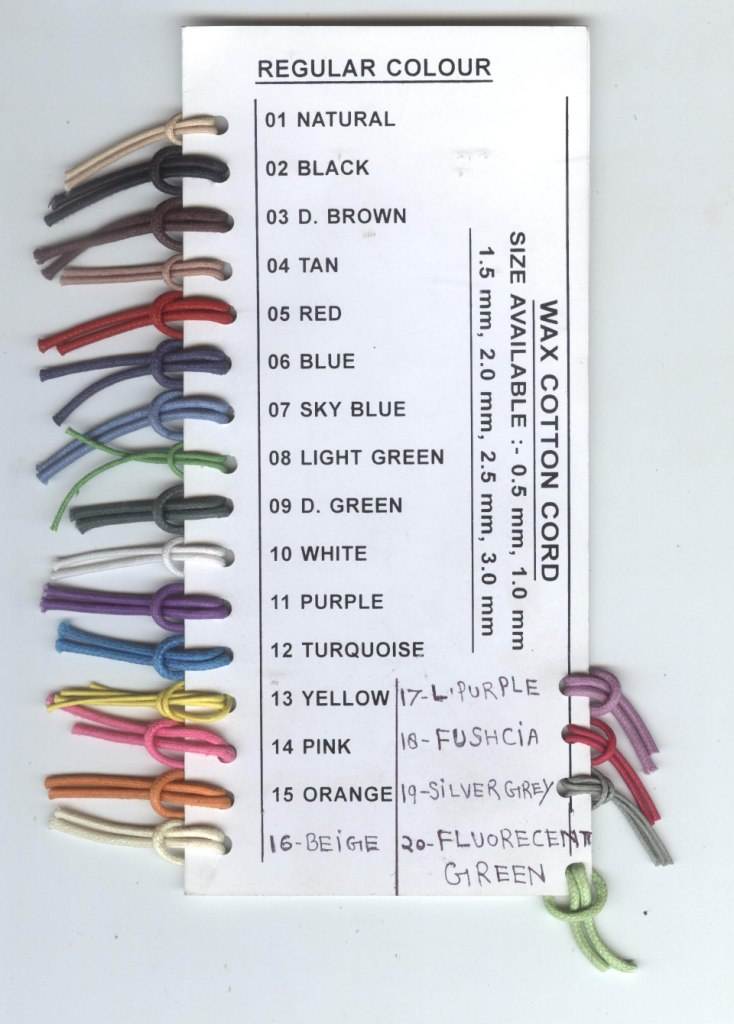 REGULAR COLOUR
01 NATURAL
02 BLACK
03 D. BROWN
04 TAN
05 RED
06 BLUE
07 SKY BLUE
08 LIGHT GREEN
09 D. GREEN
10 WHITE
11 PURPLE
12 TURQUOISE
13 YELLOW
14 PINK
15 ORANGE
16-BEIGE
17-L'PURPLE
18-FUSHCIA
19-SILVER GREY
20-FLUORECENT
GREEN
WAX COTTON CORD
SIZE AVAILABLE :- 0.5 mm, 1.0 mm
1.5 mm, 2.0 mm, 2.5 mm, 3.0 mm